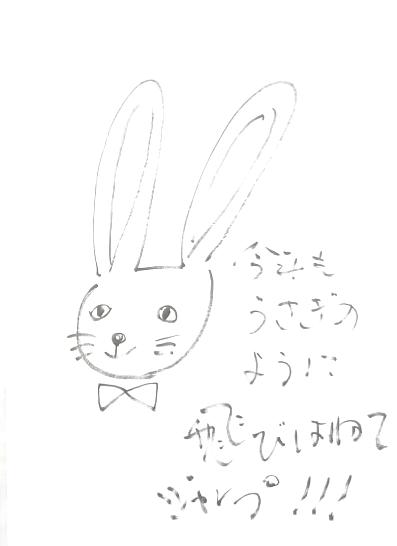 今年も
うさぎの
ように
飛びはねて
ジャンプ!!!